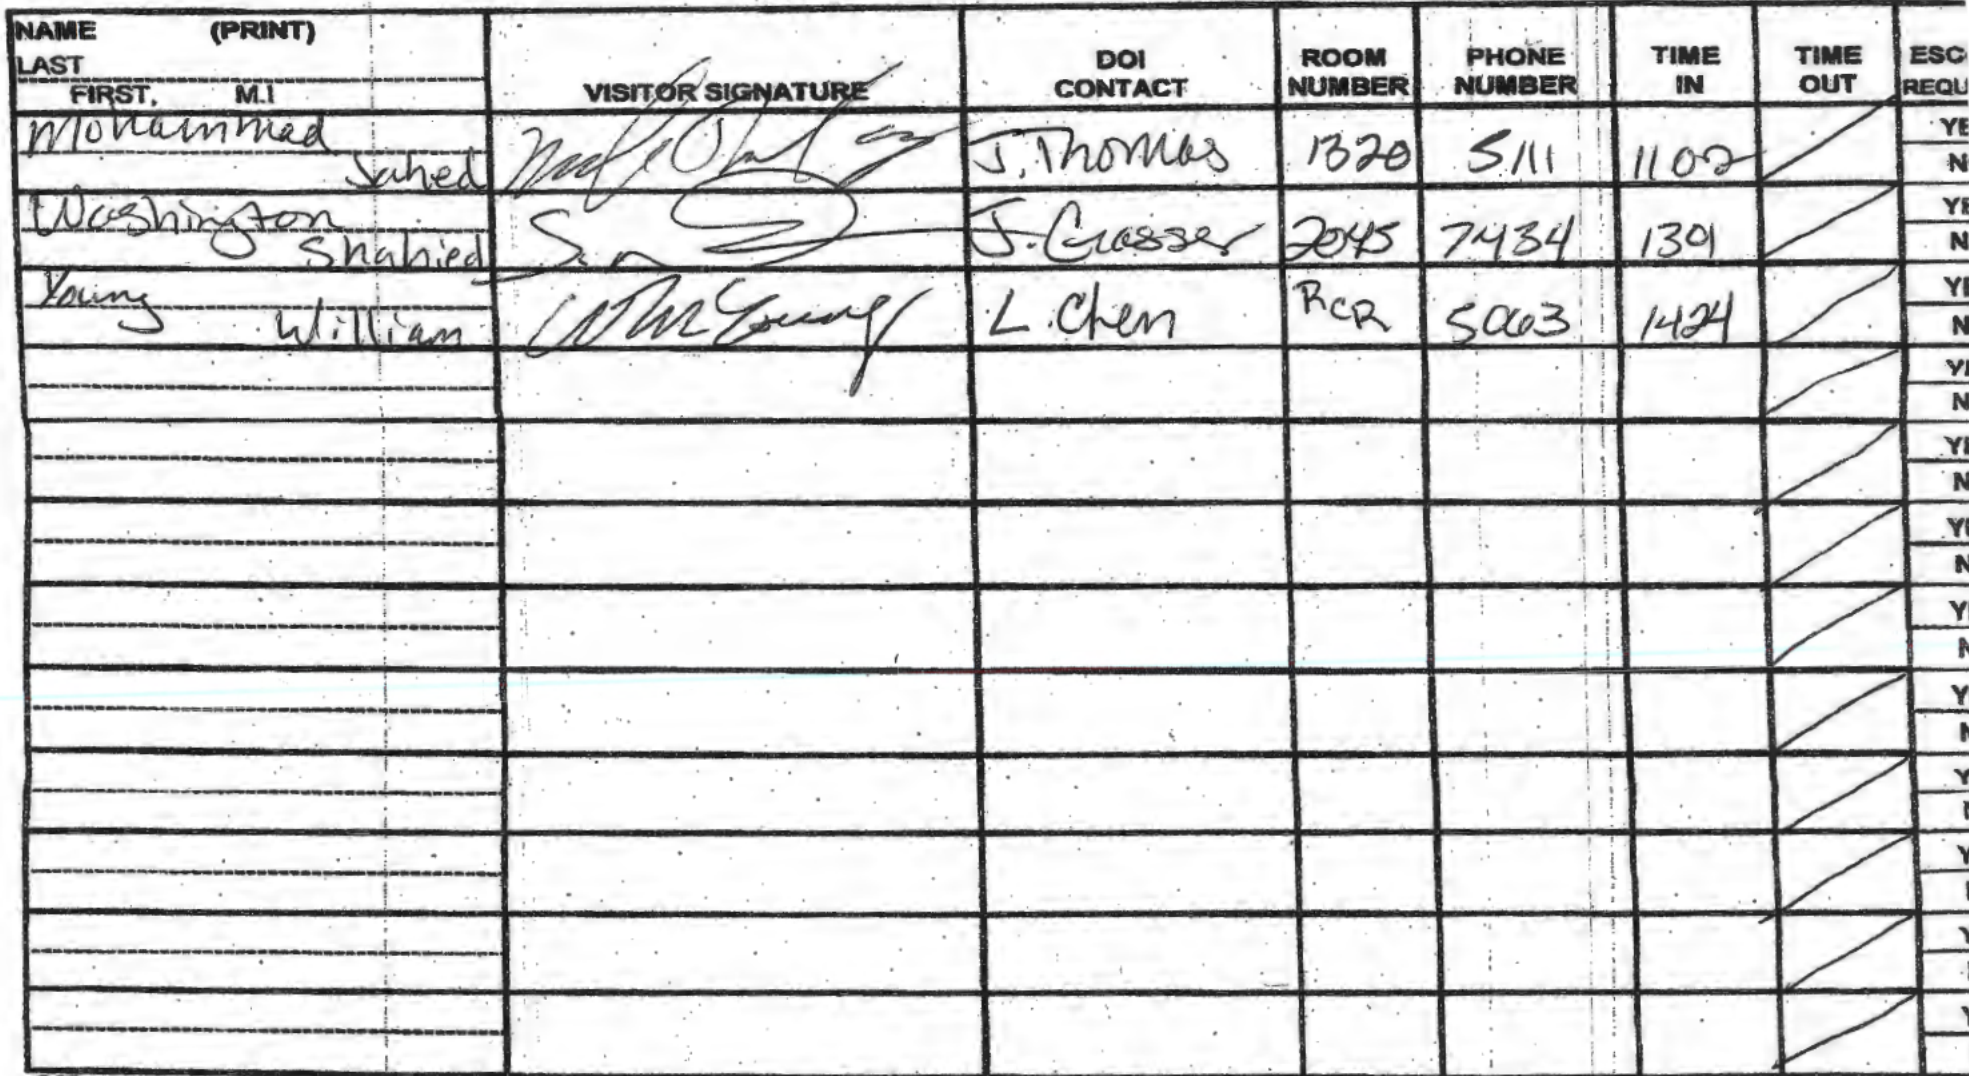 NAME (PRINT)
LAST
FIRST, M.I
VISITOR SIGNATURE
DOI
CONTACT
ROOM
NUMBER
PHONE
NUMBER
TIME
IN
TIME
OUT
ESC
REQU
Mohammad
Jahed
J. Thomas 1320 5111 1102
YE
N
Washington
Shahied
2045 7434 1301
YE
N
Young
William
Wm Young
L. Chen RCR 5063 1424
YE
N
YE
N
YE
N
YE
N
YE
N
Y
N
Y
Y
Y
Y